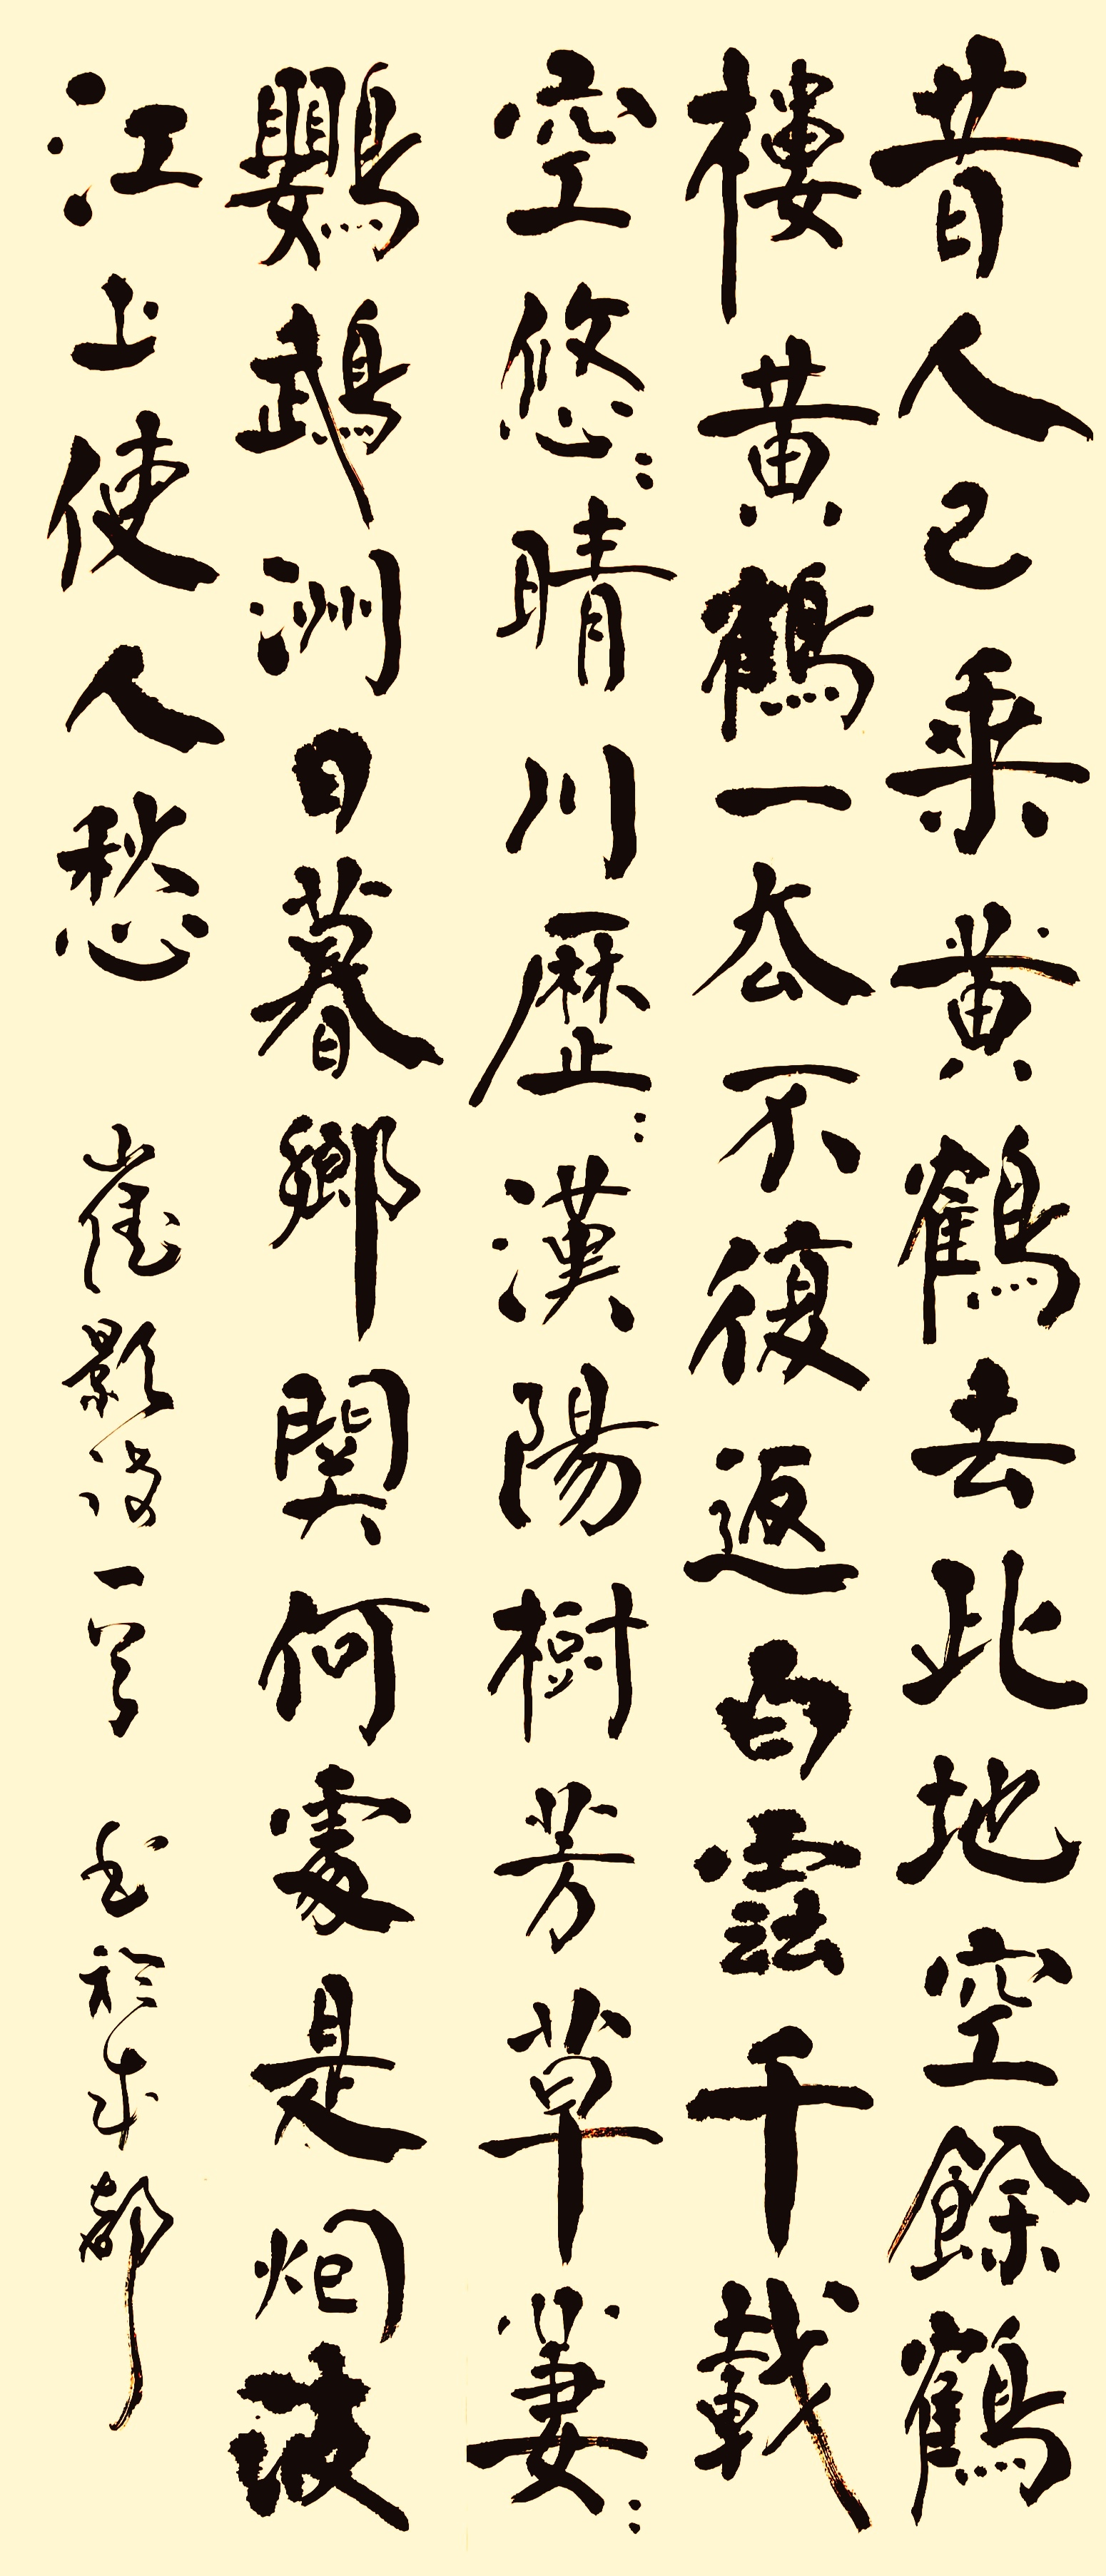 昔人已乘黄鶴去此地空餘鶴
樓黄鶴一去不復返白雲千載
空悠々晴川歷々漢陽樹芳草萋々
鸚鵡洲日暮鄉関何處是烟波
江上使人愁 崔顥詩一首 书於成都